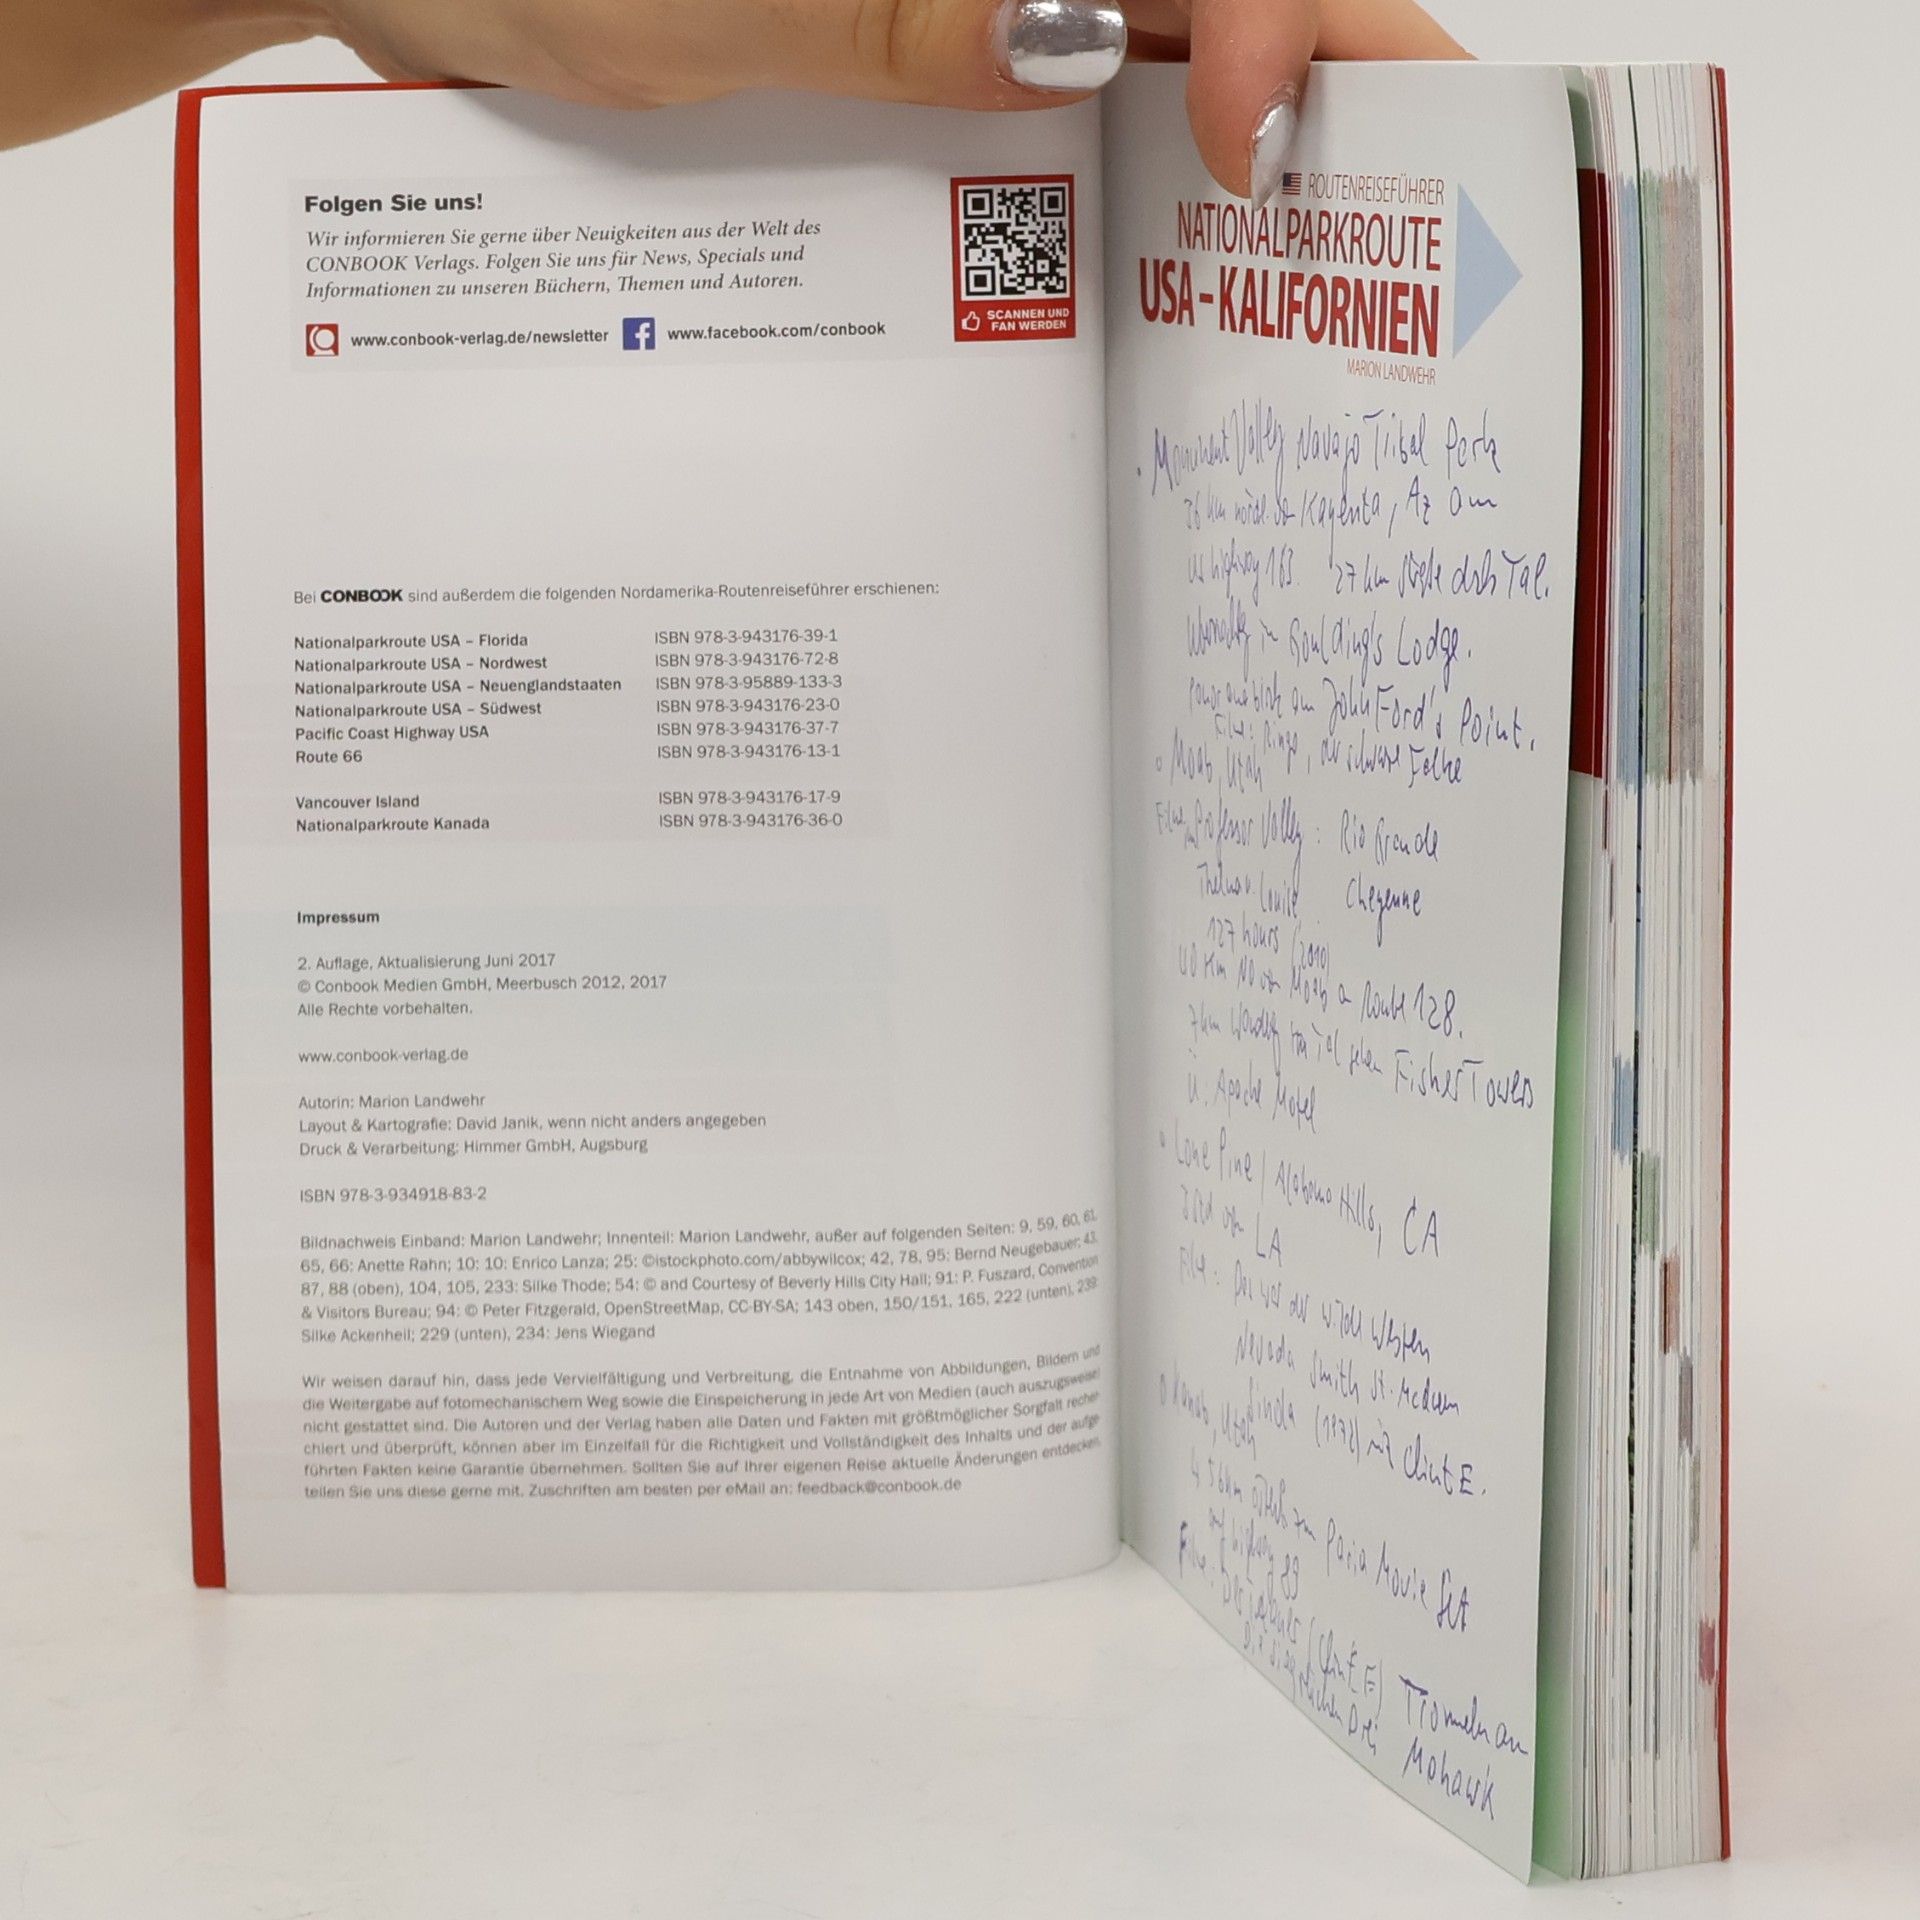 Folgen Sie uns!
Wir informieren Sie gerne über Neuigkeiten aus der Welt des
CONBOOK Verlags. Folgen Sie uns für News, Specials und
Informationen zu unseren Büchern, Themen und Autoren.
www.conbook-verlag.de/newsletter www.facebook.com/conbook
SCANNEN UND
FAN WERDEN
Bei CONBOOK sind außerdem die folgenden Nordamerika-Routenreiseführer erschienen:
Nationalparkroute USA – Florida ISBN 978-3-943176-39-1
Nationalparkroute USA – Nordwest ISBN 978-3-943176-72-8
Nationalparkroute USA – Neuenglandstaaten ISBN 978-3-95889-133-3
Nationalparkroute USA – Südwest ISBN 978-3-943176-23-0
Pacific Coast Highway USA ISBN 978-3-943176-37-7
Route 66 ISBN 978-3-943176-13-1
Vancouver Island ISBN 978-3-943176-17-9
Nationalparkroute Kanada ISBN 978-3-943176-36-0
Impressum
2. Auflage, Aktualisierung Juni 2017
© Conbook Medien GmbH, Meerbusch 2012, 2017
Alle Rechte vorbehalten.
www.conbook-verlag.de
Autorin: Marion Landwehr
Layout & Kartografie: David Janik, wenn nicht anders angegeben
Druck & Verarbeitung: Himmer GmbH, Augsburg
ISBN 978-3-934918-83-2
Bildnachweis Einband: Marion Landwehr; Innenteil: Marion Landwehr, außer auf folgenden Seiten: 9, 59, 60, 61,
65, 66: Anette Rahn; 10: 10: Enrico Lanza; 25: ©istockphoto.com/abbywilcox; 42, 78, 95: Bernd Neugebauer; 43,
87, 88 (oben), 104, 105, 233: Silke Thode; 54: © and Courtesy of Beverly Hills City Hall; 91: P. Fuszard, Convention
& Visitors Bureau; 94: © Peter Fitzgerald, OpenStreetMap, CC-BY-SA; 143 oben, 150/151, 165, 222 (unten), 239:
Silke Ackenheil; 229 (unten), 234: Jens Wiegand
Wir weisen darauf hin, dass jede Vervielfältigung und Verbreitung, die Entnahme von Abbildungen, Bildern und
die Weitergabe auf fotomechanischem Weg sowie die Einspeicherung in jede Art von Medien (auch auszugsweise)
nicht gestattet sind. Die Autoren und der Verlag haben alle Daten und Fakten mit größtmöglicher Sorgfalt recher
chiert und überprüft, können aber im Einzelfall für die Richtigkeit und Vollständigkeit des Inhalts und der aufge
führten Fakten keine Garantie übernehmen. Sollten Sie auf Ihrer eigenen Reise aktuelle Änderungen entdecken,
teilen Sie uns diese gerne mit. Zuschriften am besten per eMail an: feedback@conbook.de
ROUTENREISEFÜHRER
NATIONALPARKROUTE
USA – KALIFORNIEN
MARION LANDWEHR
Monument Valley Navajo Tribal Park
36 km nördl. von Kayenta, Az am
us highway 163. 27 km Straße Tal.
in Goulding's Lodge.
am John Ford's Point.
Film: Ringo, der schwarze Falke
Moab, Utah
Filme Professor Valley: Rio Grande
Thelma u. Louise Cheyenne
127 hours (2010)
40 km NO von Moab an Route 128.
7 km Tal Fisher Towers
Ü: Apache Motel
Lone Pine / Alabama Hills, CA
3 Std von LA
Film: Das war der wilde Westen
Nevada Smith
Sinola (1972) mit Clint E.
Kanab, Utah
56 km zum Paria Movie Set
auf highway 89
Filme: Der (Clint E) Trommeln am
Die siegreichen Drei Mohawk